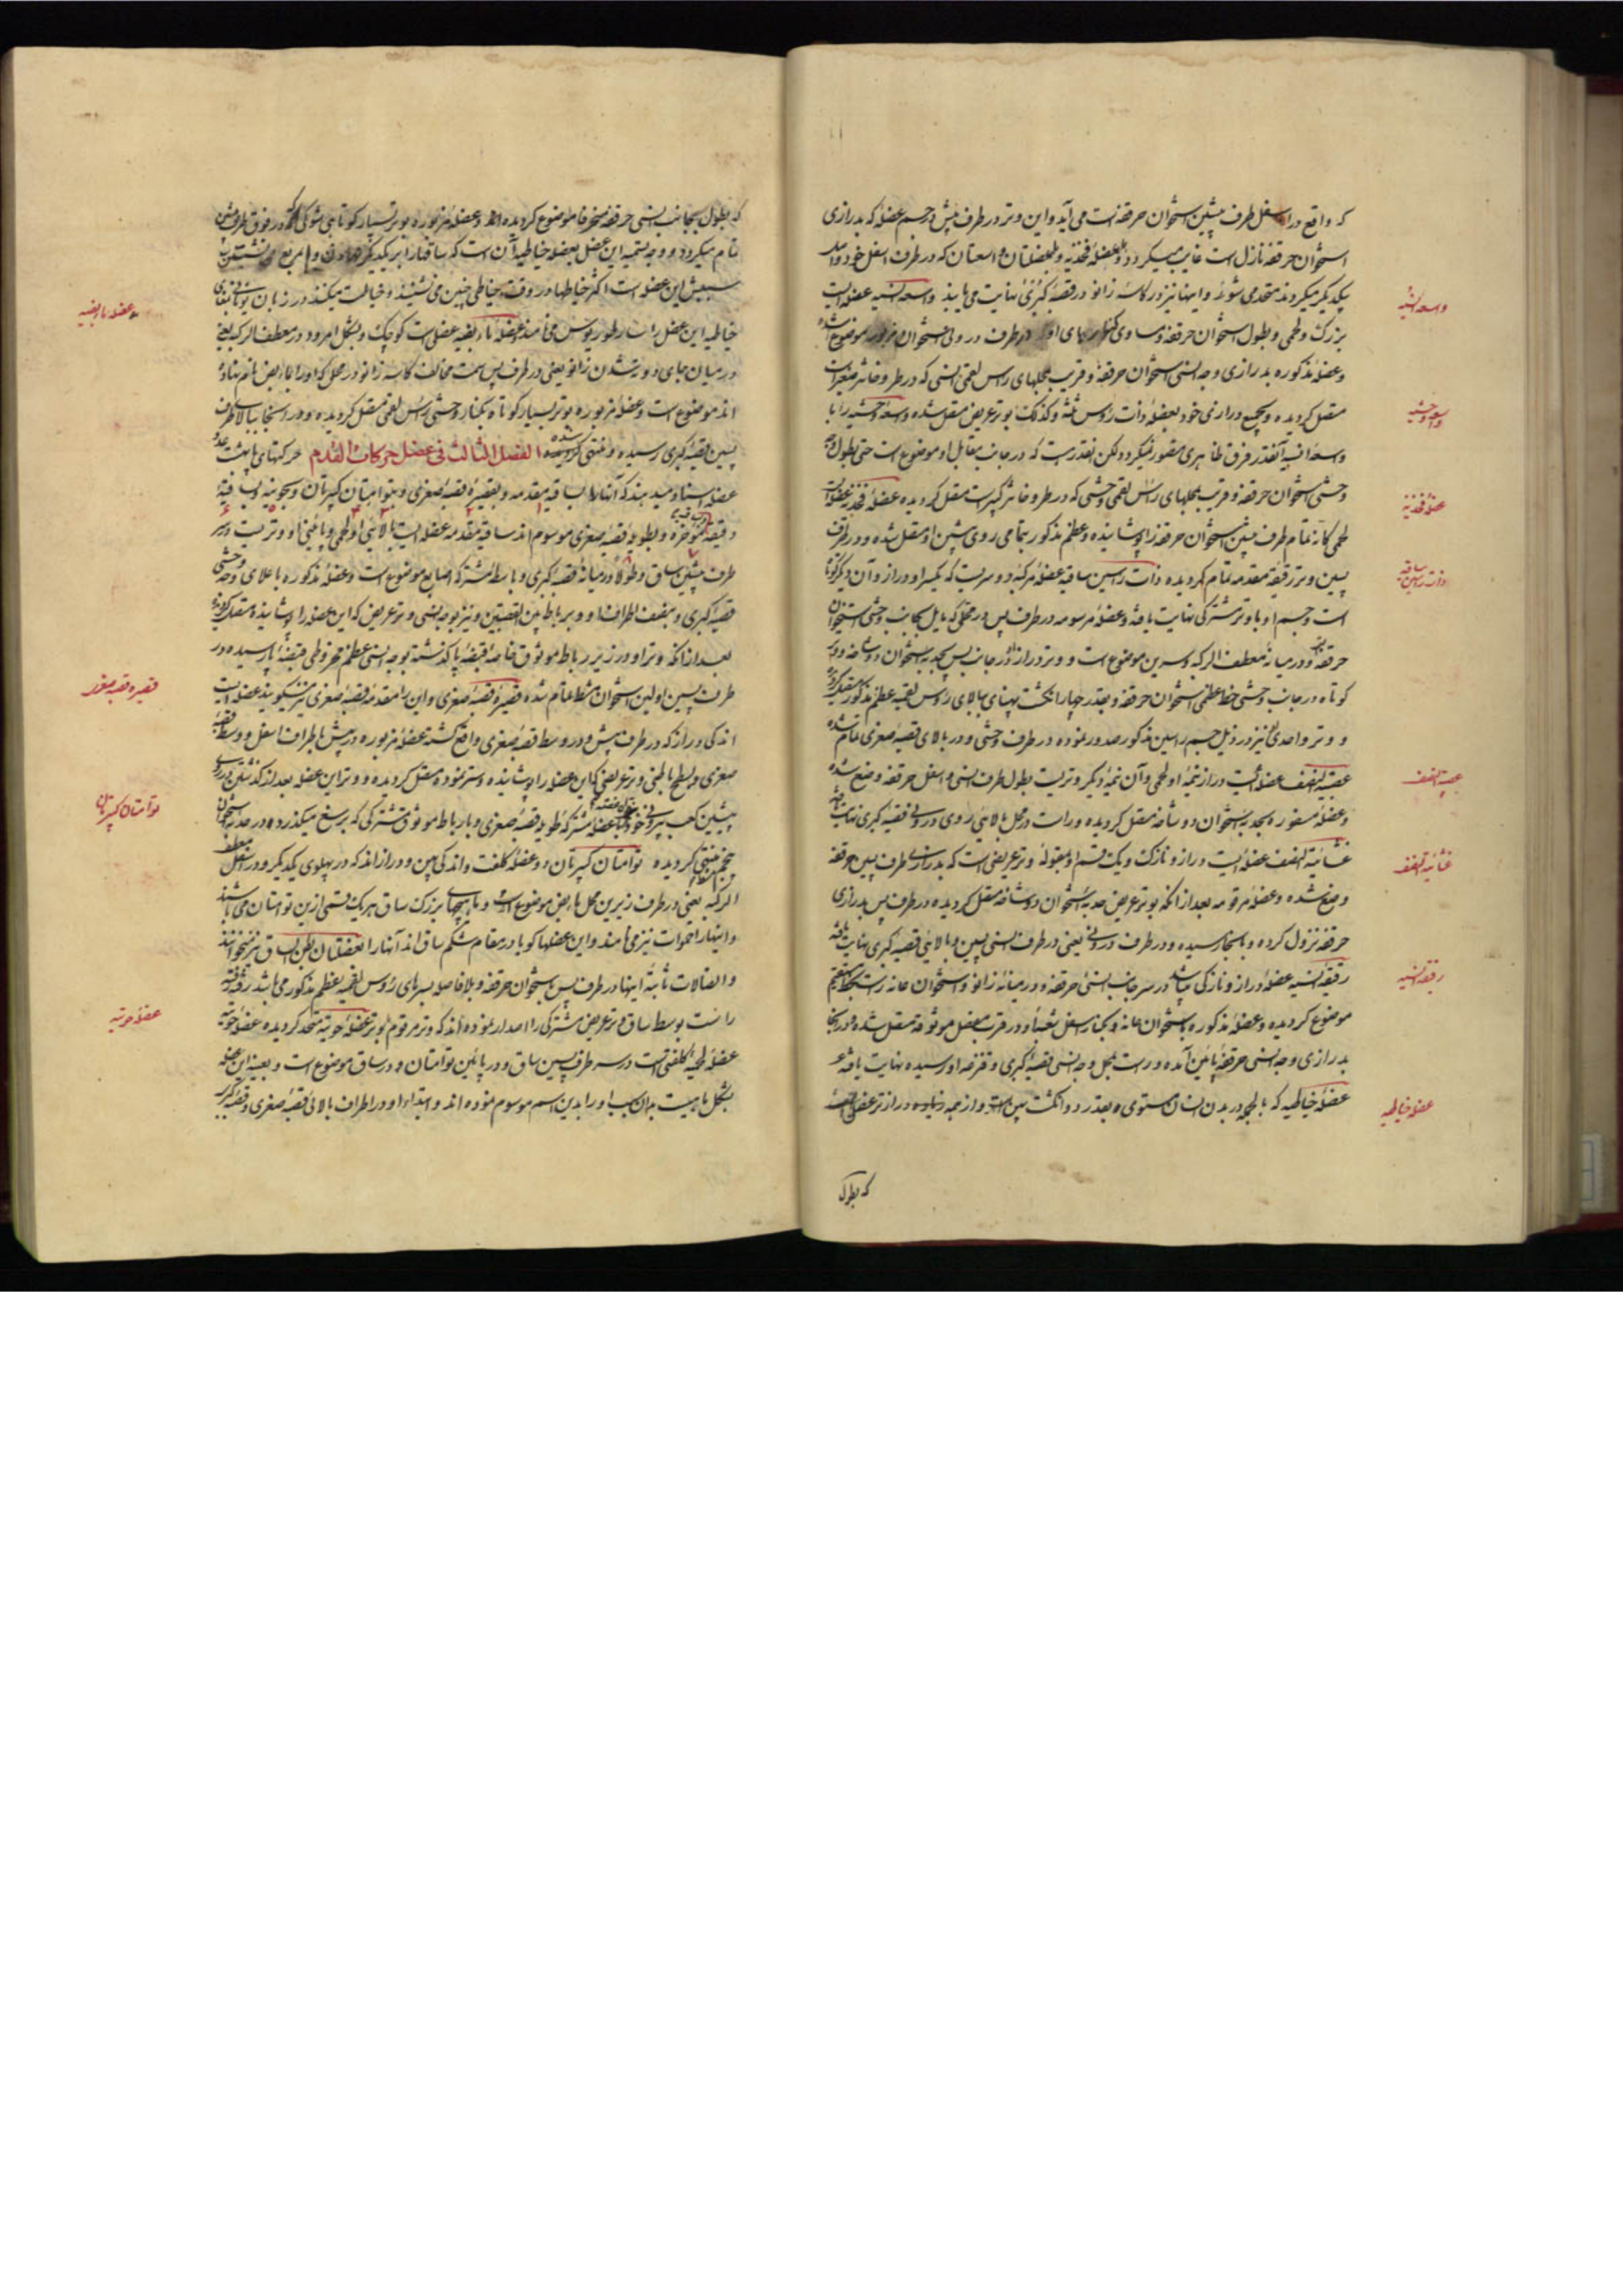 که واقع در اسفل طرف پیشین استخوان حرقفه است می آید و این وتر در طرف پیش در جسم عضله که بدرازی
استخوان حرقفه نازل است غایب میگردد و بعضلهٔ فخذیه و بعضلتان واسعتان که در طرف اسفل خود
یکدیگر میگردند متحد می شوند و اینها نیز در کاسهٔ زانو و قصبهٔ کبری نهایت می یابند واسعه انسیه عضله ایست
بزرک و لحمی و بطول استخوان حرقفه و مساوی در طرف درونی استخوان مزبور موضوع
و عضلهٔ مذکوره بدرازی وجه انسی استخوان حرقفه و قریب بمحلهای راس لقمی انسی که در طروخانتر صغیر است
متصل کردیده و بجمیع درازی خود بعضلهٔ ذات رؤس ثلثه و کذلک بوتر عریض متصل شده واسعهٔ وحشیه را با
واسعهٔ انسیه آنقدر فرق ظاهری متصور نمیگردد لکن اینقدر هست که در جانب مقابل او موضوع است حتی بطول
وحشی استخوان حرقفه و قریب بمحلهای راس لقمی وحشی که در طروخانتر کبیر است متصل کردیده عضلهٔ فخذیه عضله ایست
لحمی که تمام طرف پیشین استخوان حرقفه را پوشانیده و عظم مذکور بتمامی روی پیشین او متصل شده و در طرف
پسین وتر رقیقهٔ مقدمه تمام کردیده ذات راسین ساقیه عضلهٔ مرکبه دو سریست که یکسر او دراز و آن دیگر کوتاه
است و جسم او با وتر مشترکی نهایت یافته و عضلهٔ مرسومه در طرف پس در محلی که مایل بجانب وحشی استخوان
حرقفه و در میانهٔ معطف الرکبه و سرین موضوع است و وتر دراز او در جانب پس بحدبهٔ استخوان دو شاخه و وتر
کوتاه در جانب وحشی خط عظمی استخوان حرقفه و بقدر چهار انکشت پهنای ببالای رؤس لقمیه عظم مذکور متصل کردیده
و وتر واحدی نیز در ذیل جسم راسین مذکور صدور نموده در طرف وحشی و در بالای قصبهٔ صغری تمام شده
عصبیة النصف عضله ایست دراز نیمهٔ او لحمی و آن نیمهٔ دیگر وتریست بطول طرف انسی و اسفل حرقفه وضع شده
و عضلهٔ مسفوره بحدبهٔ استخوان دو شاخه متصل کردیده و راست در محل بالائی روی درونی قصبهٔ کبری نهایت یافته
غشائیة النصف عضله ایست دراز و نازک و یک قسم او بمقولهٔ وتر عریضی است که بدرازی طرف پسین حرقفه
وضع شده و عضلهٔ مرقومه بعد از آنکه بوتر عریض حدبهٔ استخوان دو شاخه متصل کردیده در طرف پس بدرازی
حرقفه نزول کرده و باینجا رسیده و در طرف درونی یعنی در طرف انسی پسین و بالائی قصبهٔ کبری نهایت یافته
رقیقه انسیه عضلهٔ دراز و نازکی میباشد در سر جانب انسی حرقفه و در میانهٔ زانو و استخوان عانه راست بخط مستقیم
موضوع کردیده و عضلهٔ مذکوره باستخوان عانه و بکنار اسفل شعبهٔ او و در قرب مفصل موثوقه متصل شده و در اینجا
بدرازی وجه انسی حرقفه پائین آمده و راست بمحل وجه انسی قصبهٔ کبری و قنزعه او رسیده نهایت یافته
عضلهٔ خیاطیه که بالجمله در بدن انسان مستوی بقدر دو انکشت پهن است و از همه دراز تر عضلی است
که بطول
واسعه انسیه
واسعه وحشیه
عضلهٔ فخذیه
ذات راسین ساقیه
عصبیة النصف
غشائیة النصف
رقیقه انسیه
عضله خیاطیه
که بطول بجانب انسی حرقفه منحرفا موضوع کردیده و عضلهٔ مزبوره بوتر بسیار کوتاهی بشوکی که در فوق طرف پیشین
تمام میگردد و وجه تسمیه این عضل بعضله خیاطیه آن است که ساقها را بر یکدیگر نهادن و مربع نشستن
بسبب این عضله است اکثر خیاطها در وقت خیاطی چنین می نشینند و خیاطت میکنند در زبان یونانی
خیاطیه این عضل را سارطوریوس می نامند عضلهٔ مابضیه عضلی است کوچک و بشکل امرود در معطف الرکبه یعنی
در میان جای دوته شدن زانو یعنی در طرف پس سمت مخالف کاسهٔ زانو در محل که او را مابض نام نهاده
اند موضوع است و عضلهٔ مزبوره بوتر بسیار کوتاه بکنار وحشی راس لقمی متصل کردیده و در اینجا ببالای طرف
پسین قصبهٔ کبری رسیده و منتهی شده الفصل الثالث فی عضل حرکات القدم حرکتهای پا بهشت
عضله اسناد میدهند که آنها را بساقیه مقدمه و بقصیرهٔ قصبهٔ صغری و بتوامتان کبیرتان و بحوتیه و بساقیه
و بطویلهٔ قصبهٔ صغری موسوم اند ساقیه مقدمه عضله ایست بالائی او لحمی و پائینی او وتریست و در
طرف پیشین ساق و طولا در میانهٔ قصبهٔ کبری و باسطهٔ مشترکهٔ اصابع موضوع است و عضلهٔ مذکوره باعلای وجه وحشی
قصبهٔ کبری و بنصف اطراف او و بر باط مابین القصبتین و نیز بوجه انسی وتر عریض که این عضله را پوشانیده متصل کردیده
بعد از آنکه وتر او در زیر رباط موثوق خاصهٔ قبضهٔ پا کذشته بوجه انسی عظم مخروطی قبضهٔ پا رسیده در
طرف پسین اولین استخوان مشط تمام شده قصیرهٔ قصبهٔ صغری و این را مقدمهٔ قصبهٔ صغری نیز میگویند عضله ایست
اندکی دراز که در طرف پیش و در وسط قصبهٔ صغری واقع کشته عضلهٔ مزبوره در پیش باطراف اسفل و وسط قصبهٔ
صغری و بسطح باطنی وتر عریضی که این عضله را پوشانیده و ستر نموده متصل کردیده و وتر این عضله بعد از کذشتن
پیشین کعب بیرونی خود با عضلهٔ مشترکهٔ طویلهٔ قصبهٔ صغری و با رباط موثوق مشترکی که برسغ میکذرد و در حدبهٔ استخوان
پنجم مشط منتهی کردیده توامتان کبیرتان دو عضله کلفت و اندکی پهن و دراز اند که در پهلوی یکدیگر و در اسفل معطف
الرکبه یعنی در طرف زیرین محل مابض موضوع است و ماهیچهای بزرک ساق هر یک قسمی از این توامتان می باشند
و اینها را اخوات نیز می نامند و این عضلها کویا در مقام شکم ساق اند آنها را عضلتان بطن الساق نیز میخوانند
و اتصالات ثابتهٔ اینها در طرف پس باستخوان حرقفه و بلا فاصله بسرهای رؤس لقمیه عظم مذکور می باشد
راست بوسط ساق وتر عریض مشترکی را اصدار نموده اند که وتر مرقوم با وتر عضلهٔ حوتیه متحد کردیده عضلهٔ حوتیه
عضلهٔ لحمیهٔ کلفتی است در سر طرف پسین ساق و در پائین توامتان و در ساق موضوع است و بعینه این عضله
بشکل ماهیست بدان سبب او را بدین اسم موسوم نموده اند و ابتداء او در اطراف بالائی قصبهٔ صغری و قصبهٔ کبری
عضلهٔ مابضیه
قصیره قصبه صغری
توامتان کبیرتان
عضله حوتیه